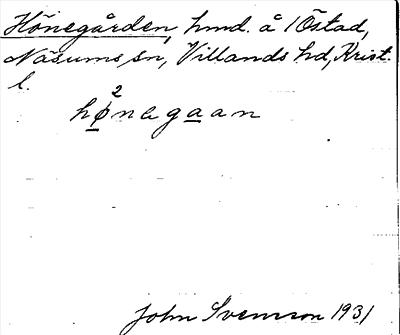 Hönegården, hmd. å 1 Östad,
Näsums sn, Villands hd, Krist.
l.
hø²nagaan
John Svensson 1931